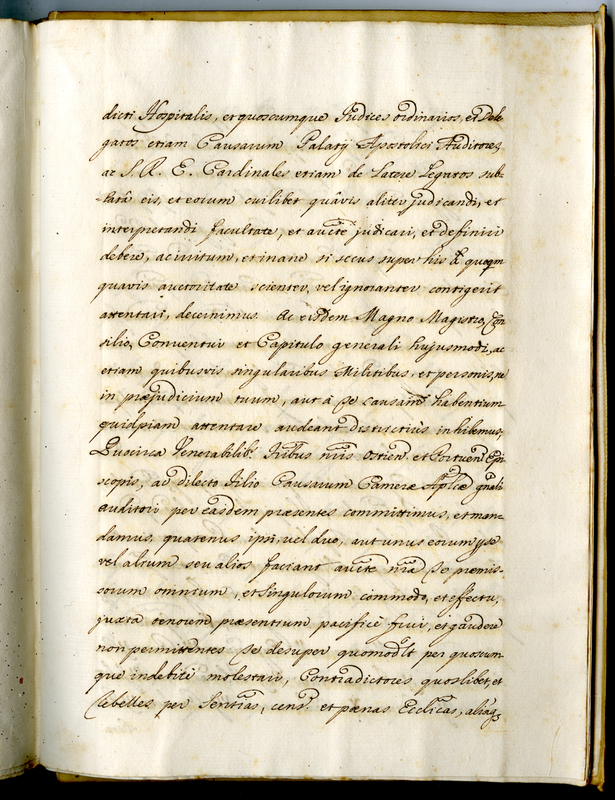 dicti Hospitalis, et quoscumque Judices ordinarios, et Dele
gatos etiam Causarum Palatij Apostolici Auditores,
ac S. R. E. Cardinales etiam de Latere Legatos sub-
-latâ eis, et eorum cuilibet quâvis aliter judicandi, et
interpretandi facultate, et aucte judicari, et definiri
debere, ac irritum, et inane si secus super his à quoqm
quavis auctoritate scienter, vel ignoranter contigerit
attentari, decernimus. Ac eisdem Magno Magistro, Con
silio, Conventui et Capitulo generali hujusmodi, ac
etiam quibusvis singularibus Militibus, et personis, ne
in præjudicium tuum, aut à Te causam habentium
quidpiam attentare audeant districtiùs inhibemus,
Quocirca Venerabilib. Frībus nr̄is Ostien. et Portuen Epi
scopis, ac dilecto Filio Causarum Cameræ Aplcæ gnali
Auditori per easdem præsentes committimus, et man-
damus, quatenus ipsi, vel duo, aut unus eorum p se
vel alium seu alios faciant aucte nr̄a Te præmis-
sorum omnium, et singulorum commodo, et effectu,
juxta tenorem præsentium pacificè frui, et gaudere
non permittentes Te desuper quomodlt per quoscum
que indebitè molestari, Contradictores quoslibet, et
Rebelles per Sentias, cens. et pœnas Ecclicas, aliaq3